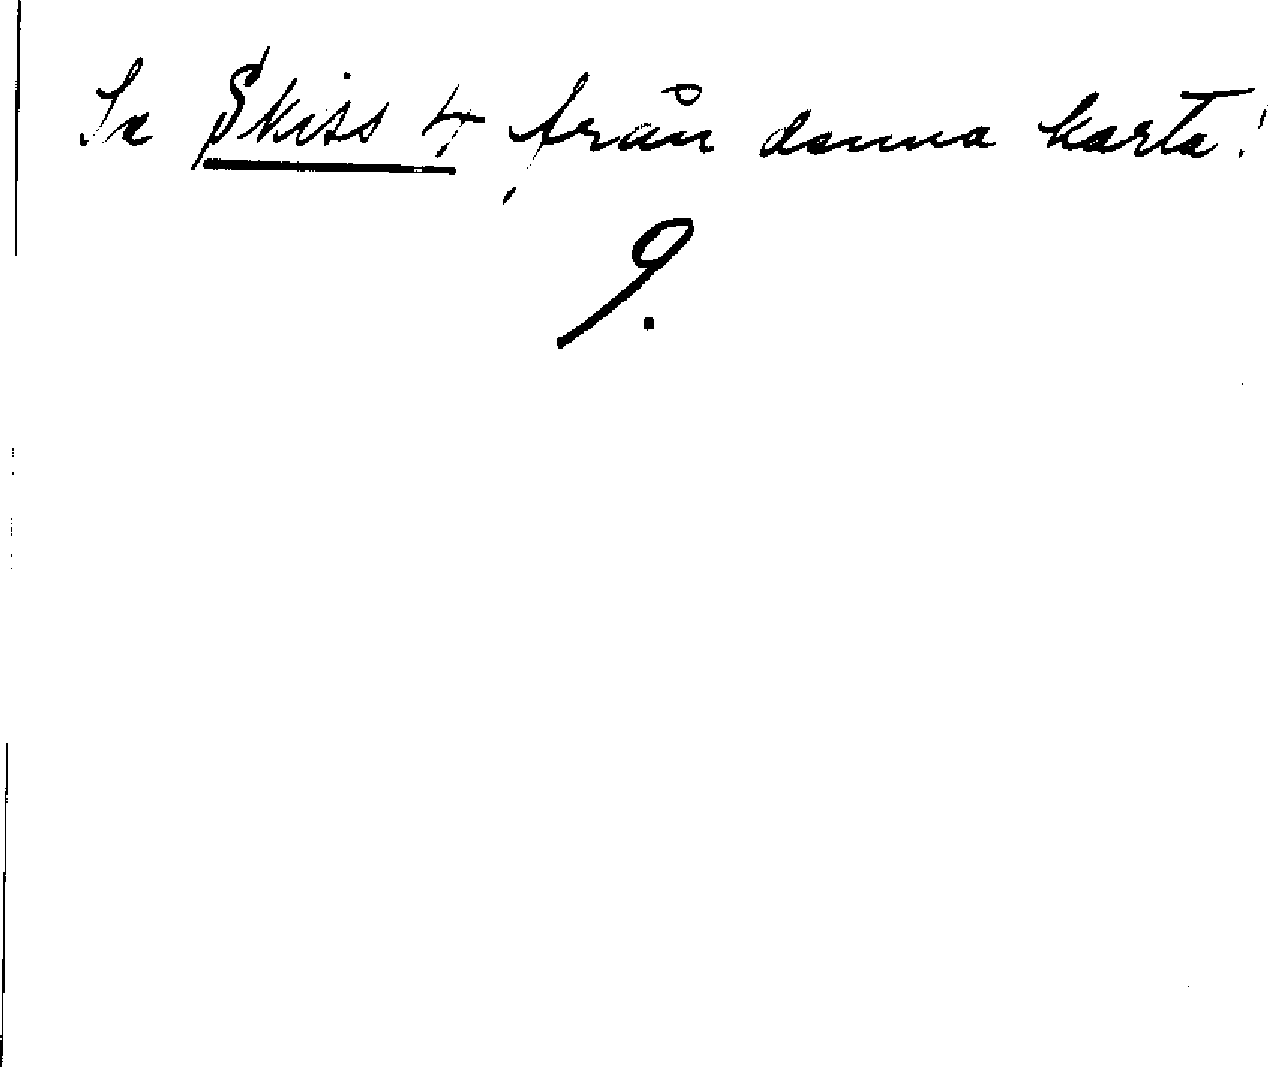 Se Skiss 4 från denna karta!
9.